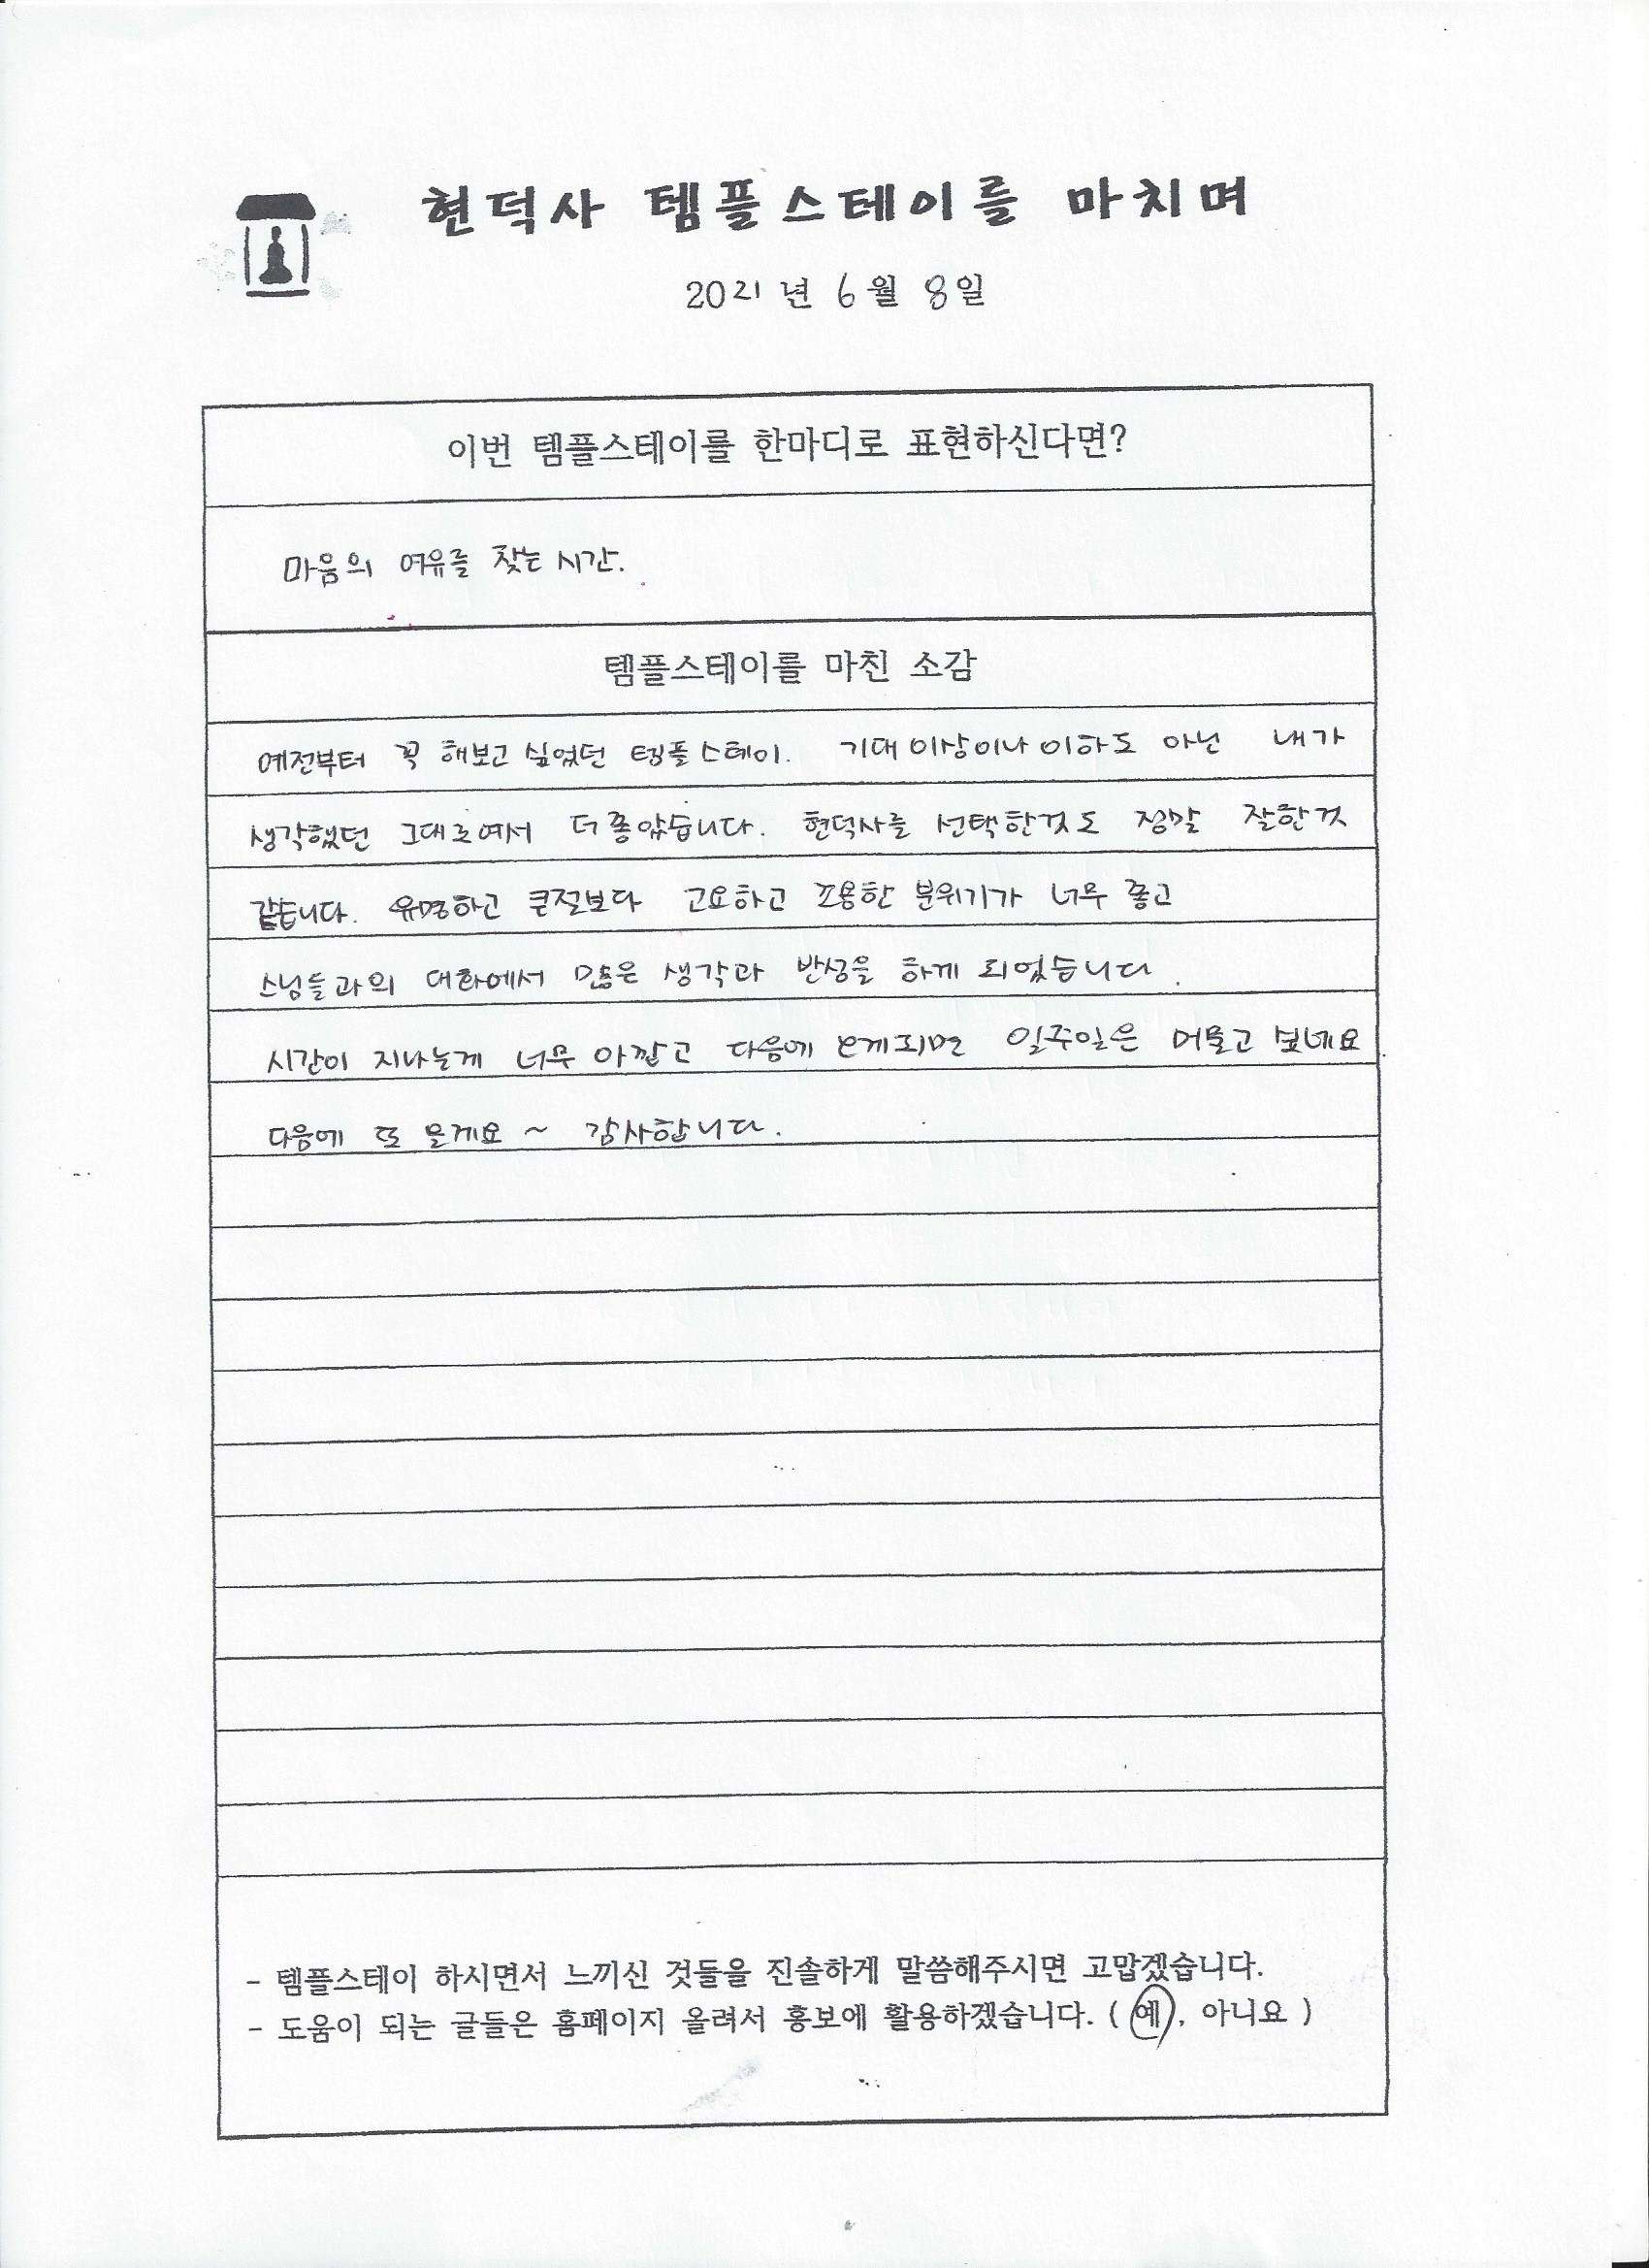 현덕사 템플스테이를 마치며
2021년 6월 8일
이번 템플스테이를 한마디로 표현하신다면?
마음의 여유를 찾는 시간.
템플스테이를 마친 소감
예전부터 꼭 해보고 싶었던 템플스테이. 기대 이상이나 이하도 아닌 내가
생각했던 그대로여서 더 좋았습니다. 현덕사를 선택한것도 정말 잘한것
같습니다. 유명하고 큰절보다 고요하고 조용한 분위기가 너무 좋고
스님들과의 대화에서 많은 생각과 반성을 하게 되었습니다.
시간이 지나는게 너무 아깝고 다음에 오게되면 일주일은 머물고 싶네요
다음에 또 올게요 ~ 감사합니다.
- 템플스테이 하시면서 느끼신 것들을 진솔하게 말씀해주시면 고맙겠습니다.
- 도움이 되는 글들은 홈페이지 올려서 홍보에 활용하겠습니다. ( 예, 아니요 )